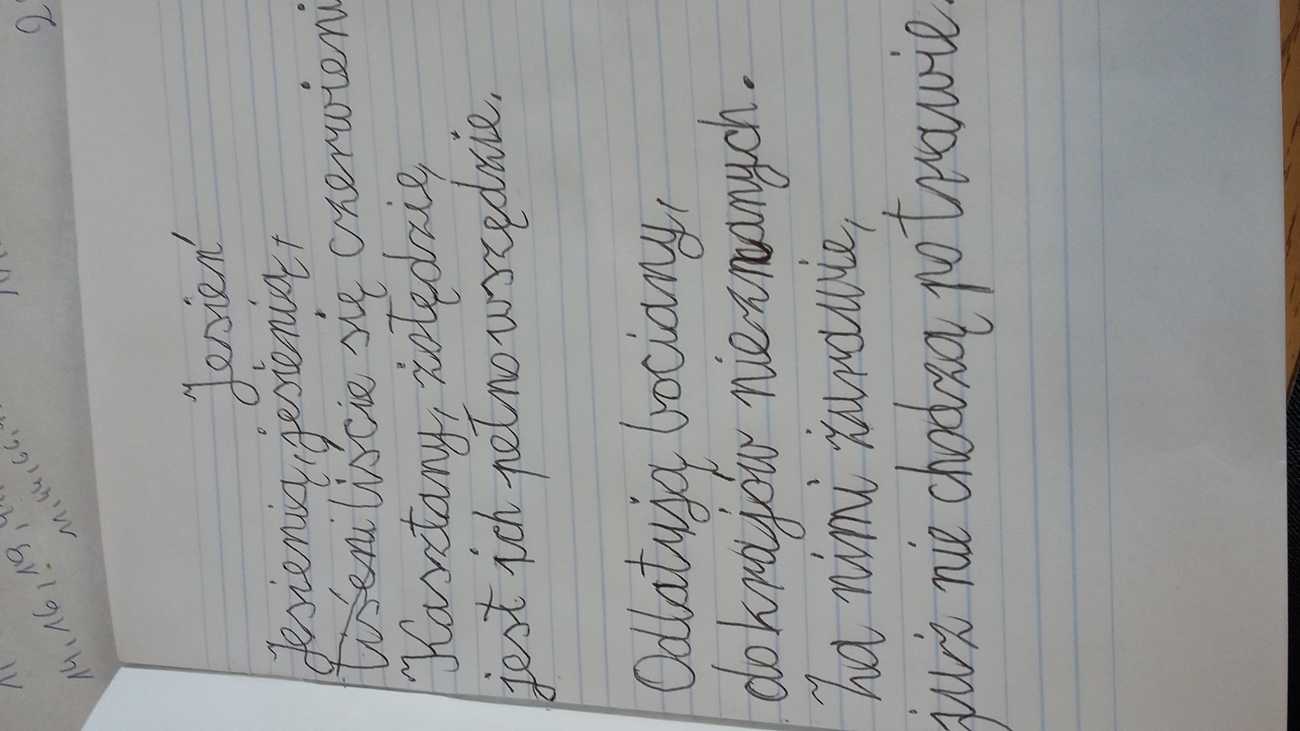 Jesień
Jesienią, jesienią,
liście się czerwieni
Kasztany, żołędzie,
jest ich pełno wszędzie.
Odlatują bociany,
do krajów nieznanych.
Za nimi żurawie,
już nie chodzą po trawie.